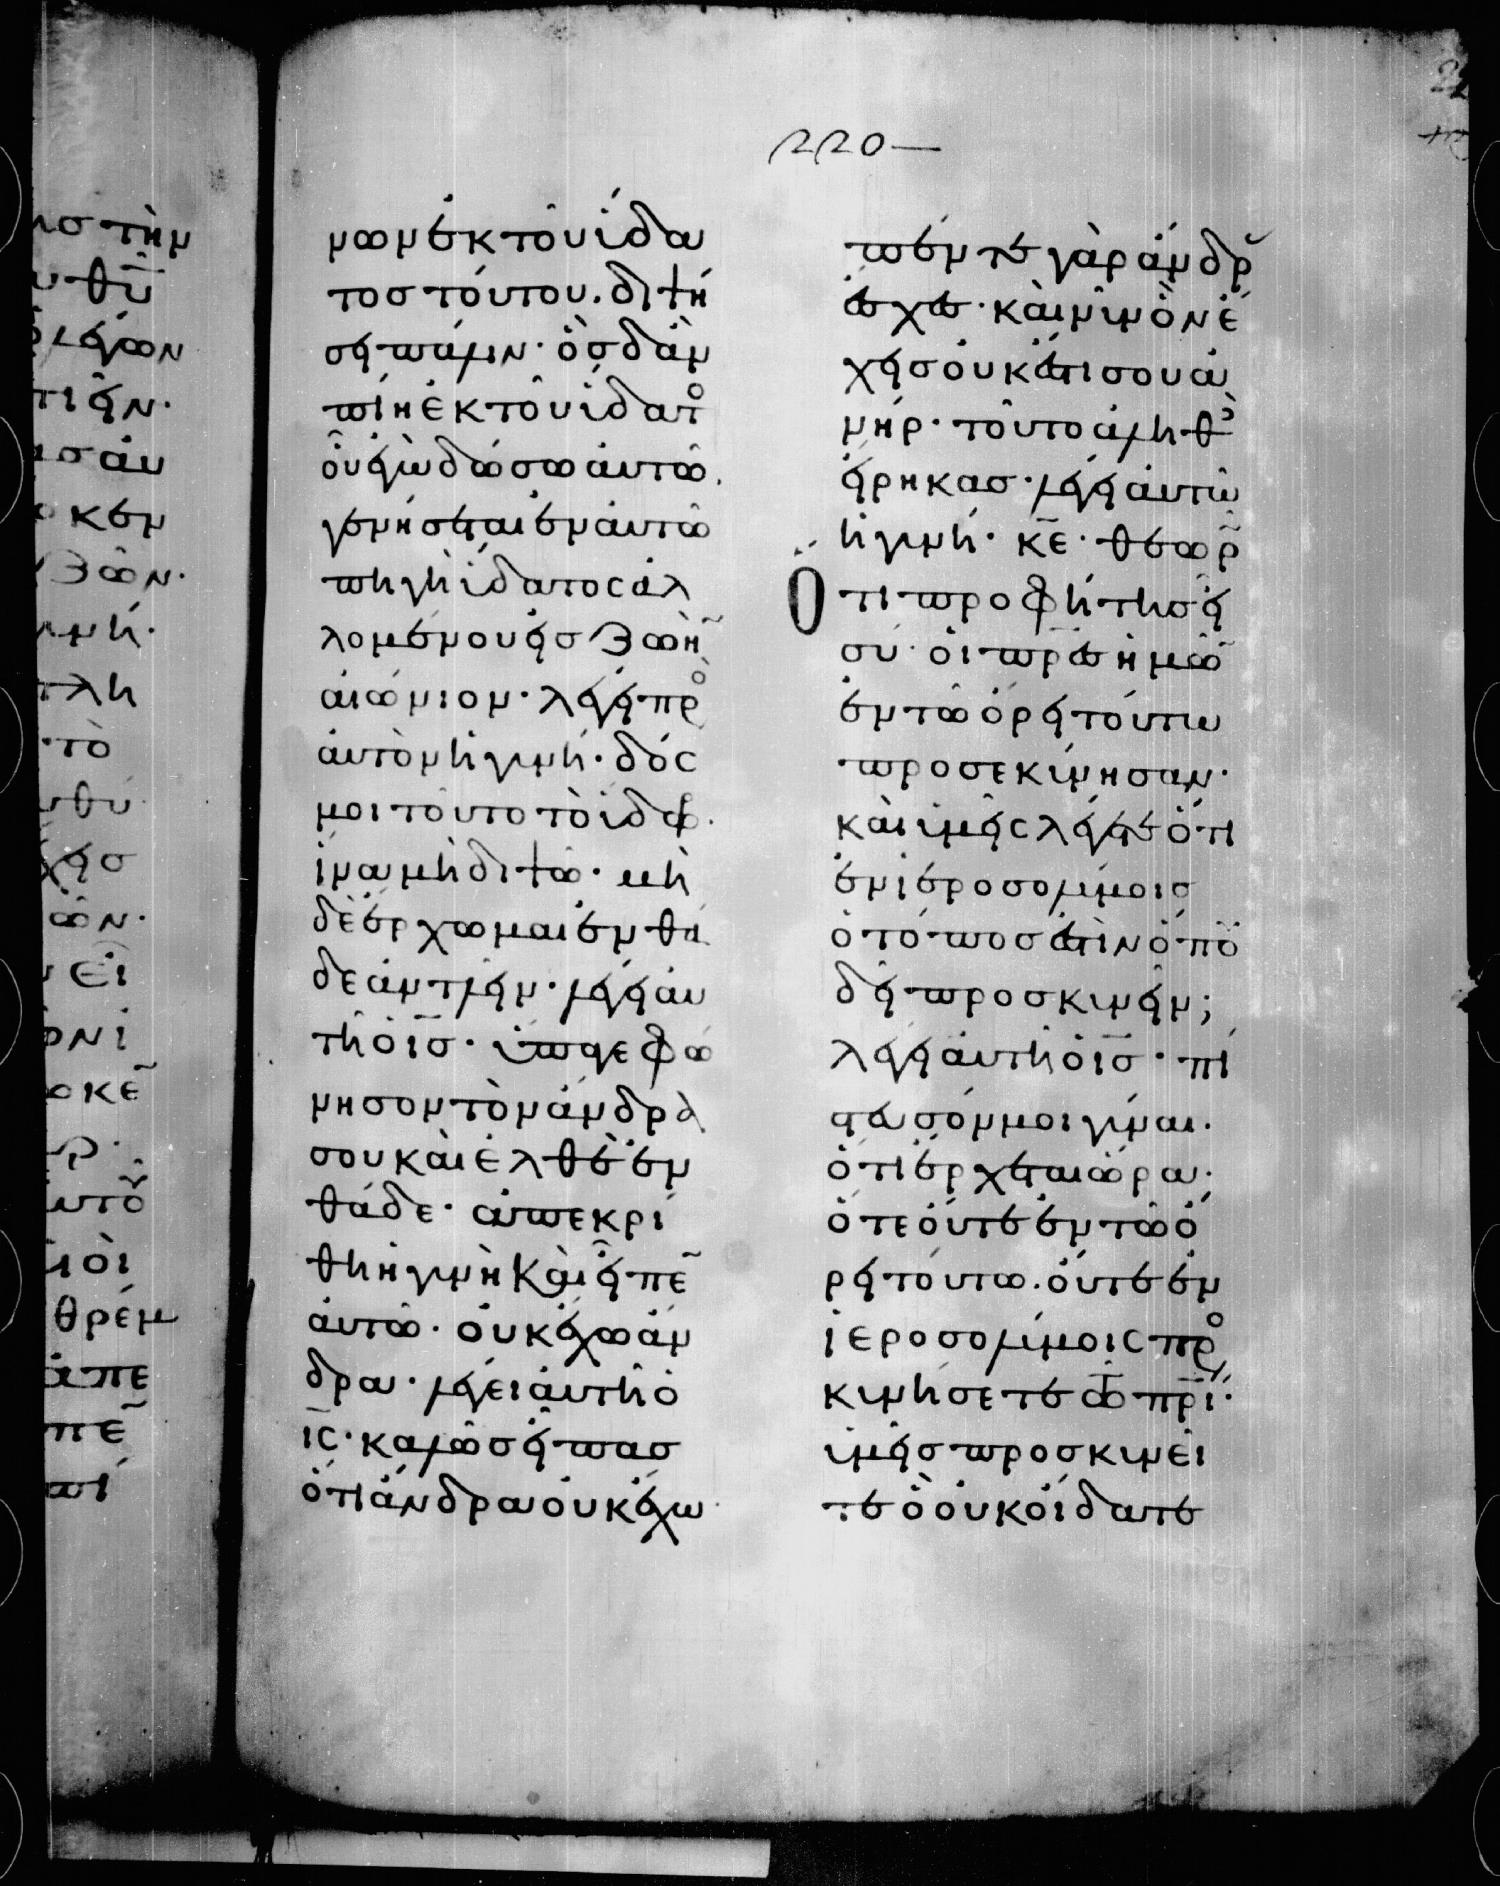 220—
νων ἐκ τοῦ ὕδα
τος τούτου. διψή
σει πάλιν· ὃς δ' ἂν
πίη ἐκ τοῦ ὕδατο
οὗ ἐγὼ δώσω αὐτῶ.
γενήσεται ἐν αὐτῶ
πηγὴ ὕδατος ἁλ
λομένου εἰς ζωὴ̃
αἰώνιον· λέγει πρὸ
αὐτὸν ἡ γυνή· δός
μοι τοῦτο τὸ ὕδωρ.
ἵνα μὴ διψῶ· μὴ
δὲ ἔρχωμαι ἐνθά
δε ἀντλεῖν· λέγει αὐ
τῆ ὁ ι̅σ̅· ὕπαγε φώ
νησον τὸν ἄνδρα
σου καὶ ἐλθὲ ἐν
θάδε· ἀπεκρί
θη ἡ γυνὴ καὶ εἶπε̃
αὐτῶ· οὐκ ἔχω ἄν
δρα· λέγει αὐτῆ ὁ
ι̅ς̅· καλῶς εἶπας
ὅτι ἄνδρα οὐκ ἔχω·
πέντε γὰρ ἄνδρ
ἔσχες· καὶ νῦν ὃν ἔ
χεις οὐκ ἔστι σου ἀ
νήρ· τοῦτο ἀληθὲ
εἴρηκας· λέγει αὐτῶ
ἡ γυνή· κ̅ε̅· θεωρ̅
ὅτι προφήτης εἶ
σύ· οἱ πρ̅ες ἡμῶ̃
ἐν τῶ ὄρει τούτω
προσεκύνησαν·
καὶ ὑμεῖς λέγετε ὅτι
ἐν ἱεροσολύμοις
ὁ τόπος ἐστὶν ὅπου
δεῖ προσκυνεῖν;
λέγει αὐτῆ ὁ ι̅σ̅· πί
στευσόν μοι γύναι.
ὅτι ἔρχεται ὥρα.
ὅτε οὔτε ἐν τῶ ὄ
ρει τούτω. οὔτε ἐν
ἱεροσολύμοις προσ
κυνήσετε τῶ π̅ρ̅ι̅·
ὑμεῖς προσκυνεῖ
τε ὃ οὐκ οἴδατε